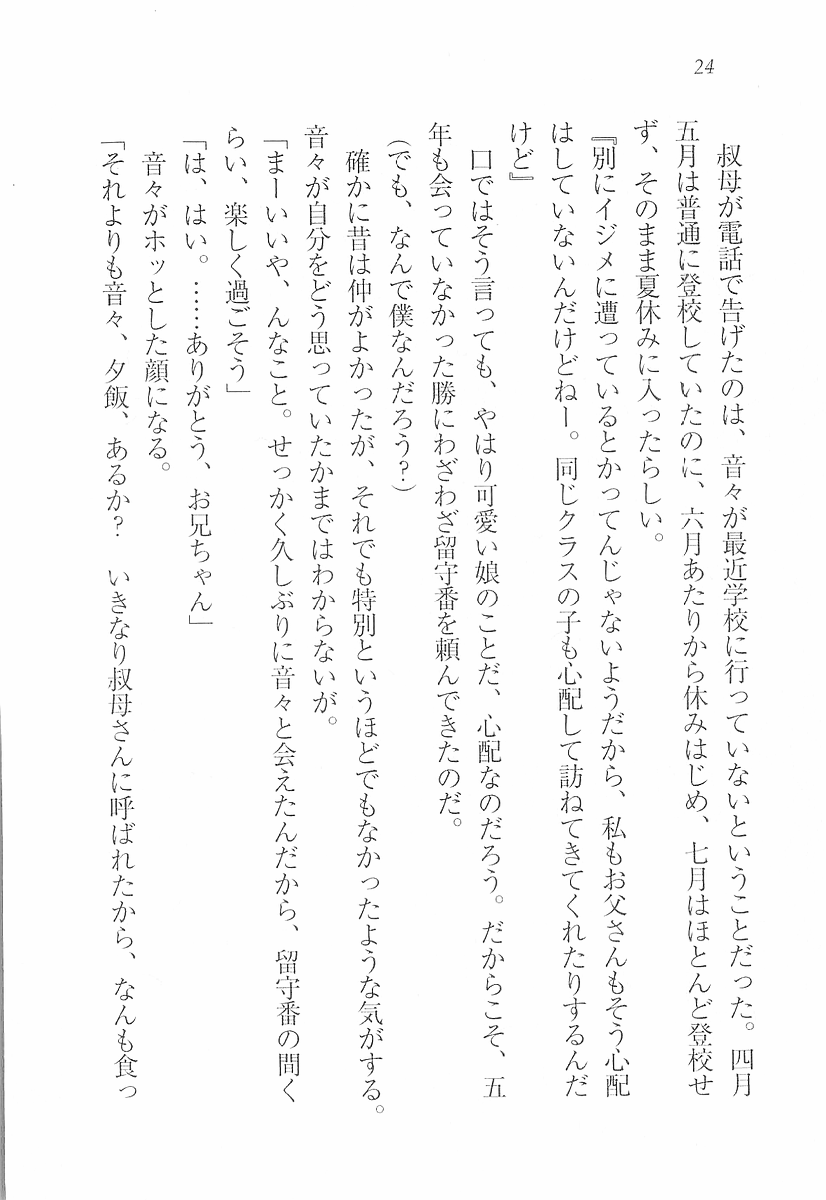 24
叔母が電話で告げたのは、音々が最近学校に行っていないということだった。四月
五月は普通に登校していたのに、六月あたりから休みはじめ、七月はほとんど登校せ
ず、そのまま夏休みに入ったらしい。
『別にイジメに遭っているとかってんじゃないようだから、私もお父さんもそう心配
はしていないんだけどねー。同じクラスの子も心配して訪ねてきてくれたりするんだ
けど』
口ではそう言っても、やはり可愛い娘のことだ、心配なのだろう。だからこそ、五
年も会っていなかった勝にわざわざ留守番を頼んできたのだ。
(でも、なんで僕なんだろう？)
確かに昔は仲がよかったが、それでも特別というほどでもなかったような気がする。
音々が自分をどう思っていたかまではわからないが。
「まーいいや、んなこと。せっかく久しぶりに音々と会えたんだから、留守番の間く
らい、楽しく過ごそう」
「は、はい。……ありがとう、お兄ちゃん」
音々がホッとした顔になる。
「それよりも音々、夕飯、あるか？　いきなり叔母さんに呼ばれたから、なんも食っ